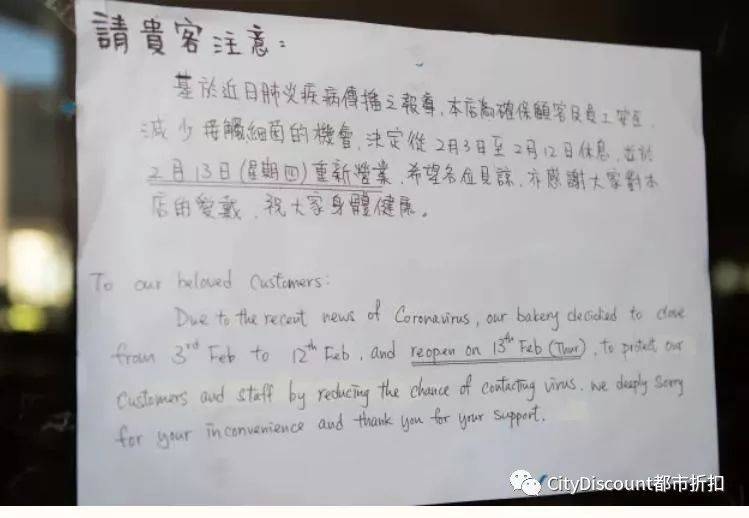 請貴客注意：
基於近日肺炎疾病傳播之報導，本店為確保顧客及員工安全，
減少接觸細菌的機會，決定從2月3日至2月12日休息，並於
2月13日(星期四)重新營業，希望各位見諒，亦感謝大家對本
店的愛戴，祝大家身體健康。
To our beloved Customers:
Due to the recent news of Coronavirus, our bakery decidied to close
from 3rd Feb to 12th Feb, and reopen on 13th Feb (Thur), to protect our
Customers and staff by reducing the chance of contacting virus. we deeply sorry
for your inconvenience and thank you for your support.
CityDiscount都市折扣